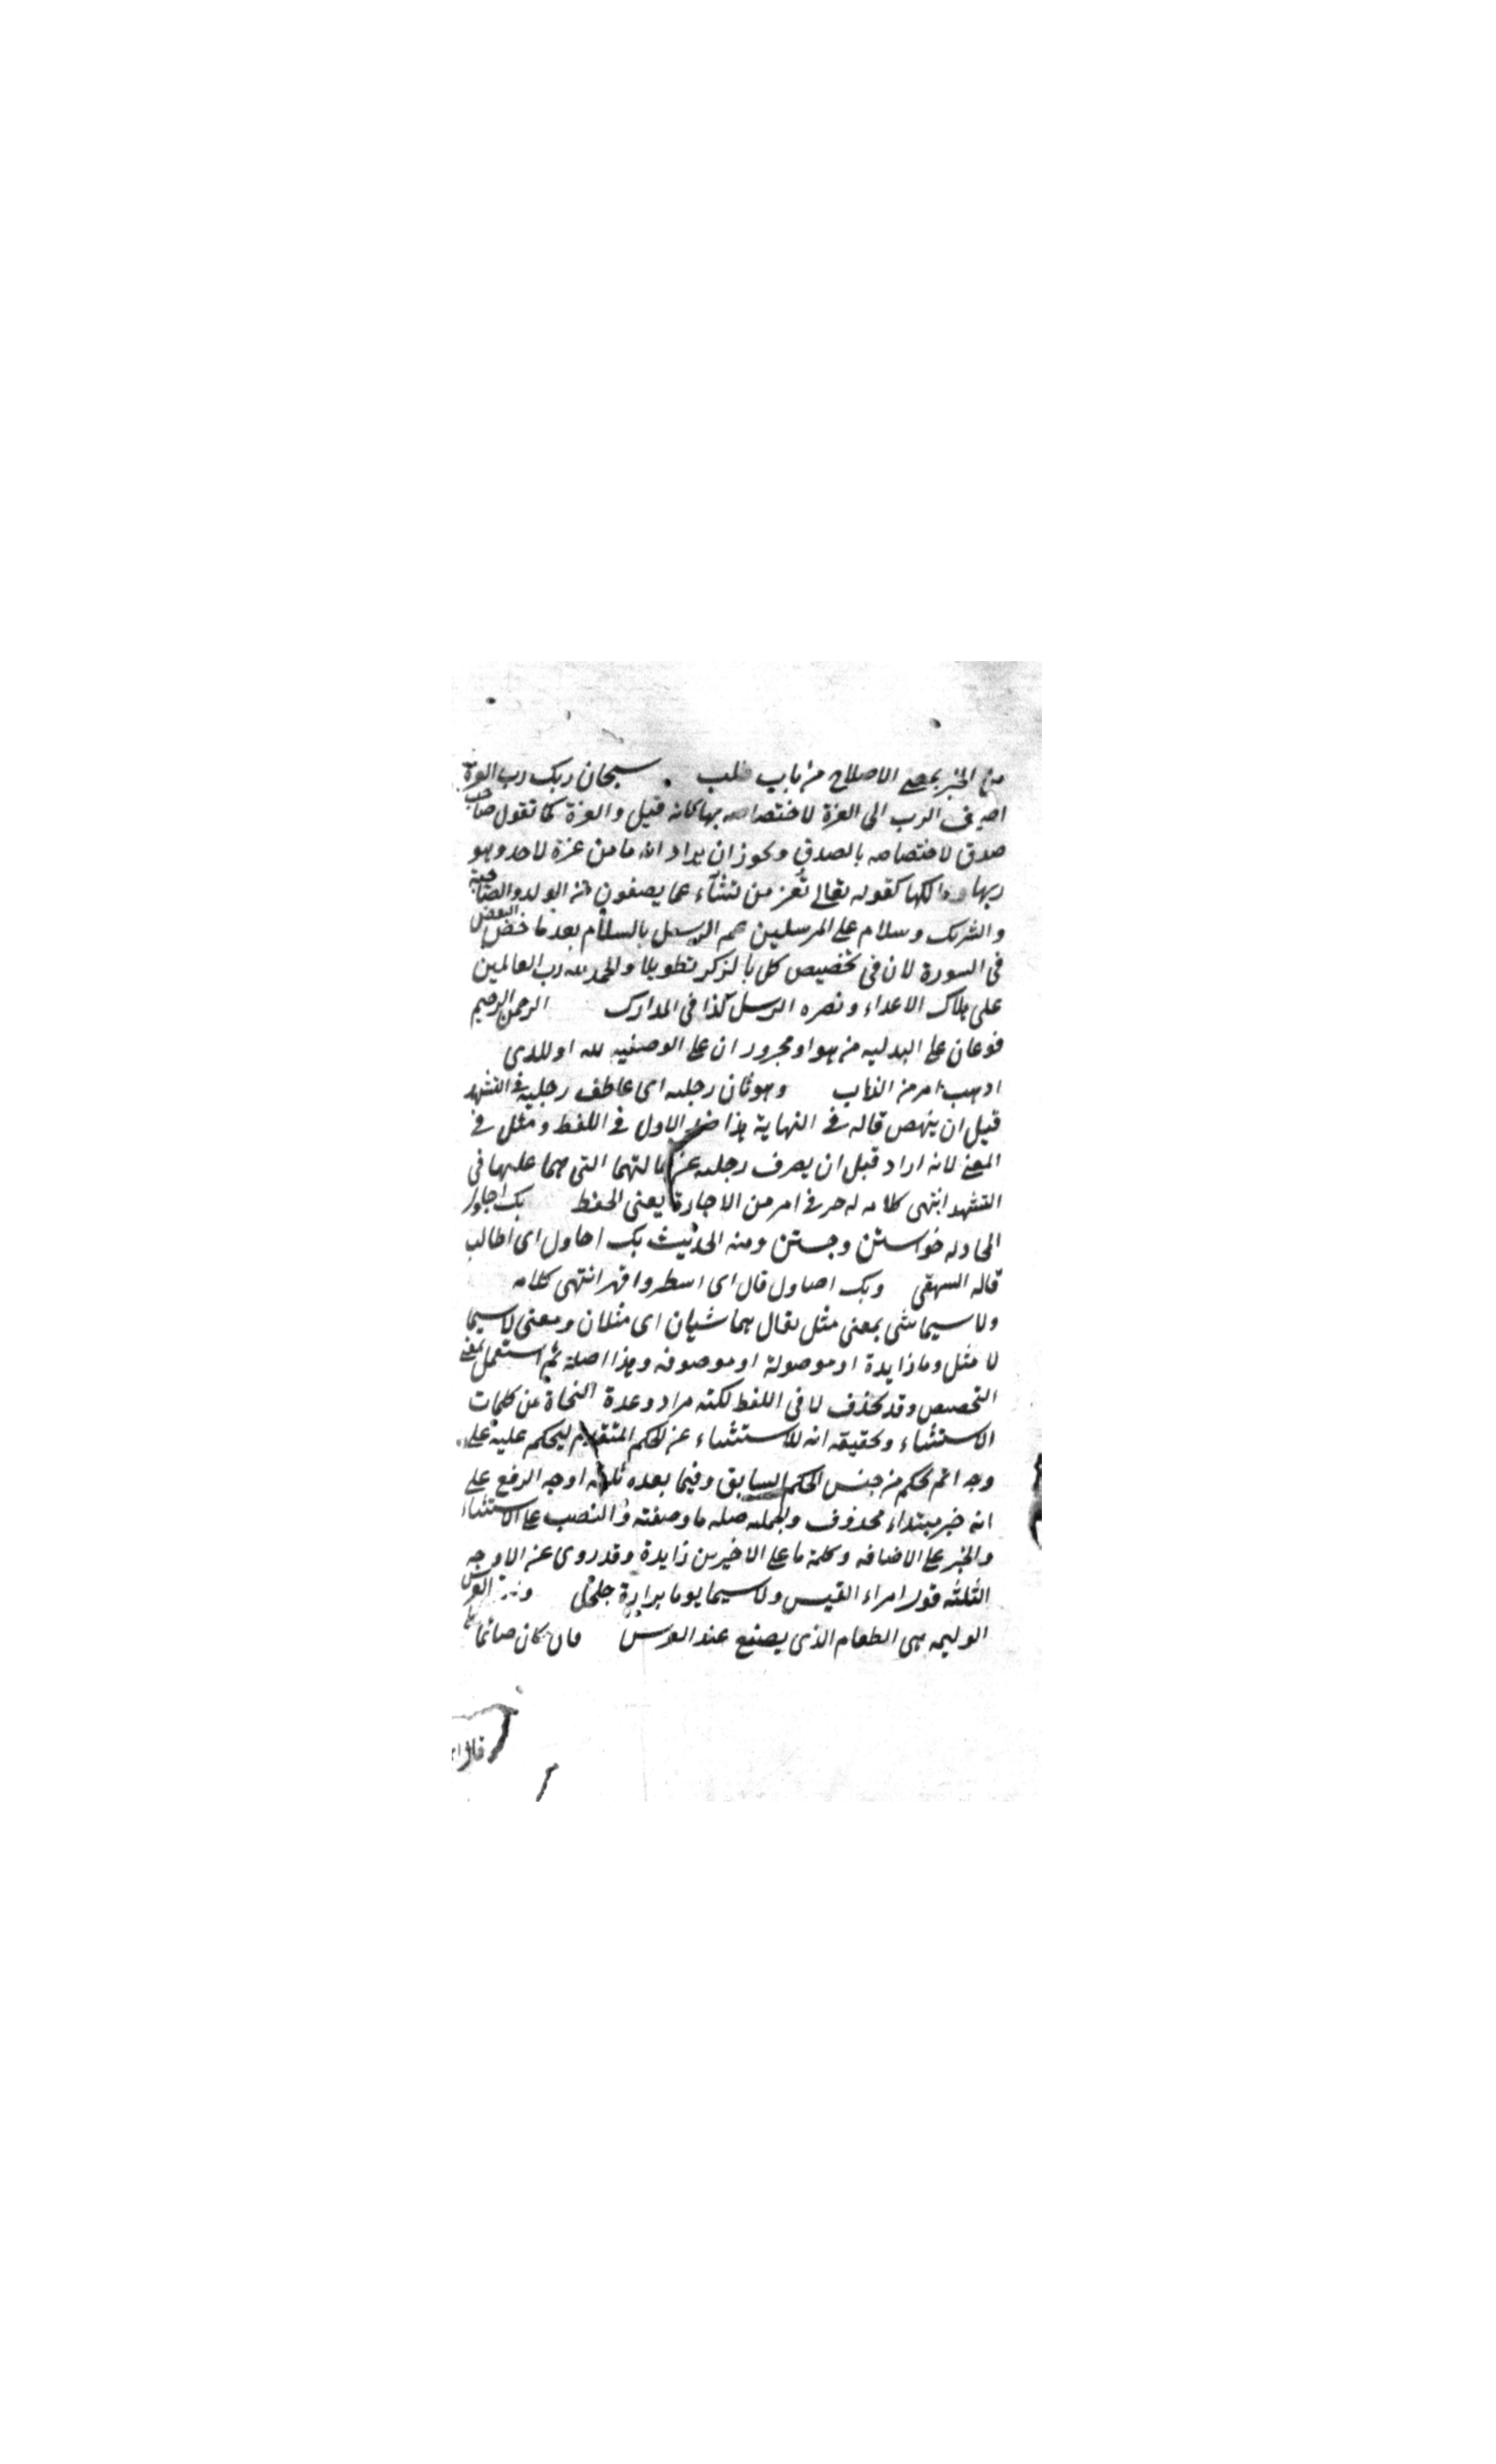 من الجبر بمعنى الاصلاح من باب طلب سبحان ربك رب العزة
اضيف الرب الى العزة لاختصاصه بها كانه قيل والعزة كما تقول صاحب
صدق لاختصاصه بالصدق ويجوز ان يراد انه ما من عزة لاحد وهو
ربها ومالكها كقوله تعالى تعز من تشآء عما يصفون من الولد والصاحبة
والشريك وسلام على المرسلين عم الرسل بالسلام بعد ما خص البعض
فى السورة لان فى تخصيص كل بالذكر تطويلا والحمد لله رب العالمين
على هلاك الاعداء ونصره الرسل كذا فى المدارك الرحمن الرحيم
مرفوعان على البدليه من هو او مجروران على الوصفيه لله او للذى
اذهب امر من الذهاب وهو ثان رجليه اى عاطف رجليه فى التشهد
قبل ان ينهض قاله فى النهاية هذا ضد الاول فى اللفظ ومثل فى
المعنى لانه اراد قبل ان يصرف رجليه عن حالتهما التى هما عليها فى
التشهد انتهى كلامه اجرنى امر من الاجارة يعنى الحفظ بك احاول
المحاوله خواستن وجستن ومنه الحديث بك احاول اى اطالب
قاله البيهقى وبك اصاول قال اى اسطو واقهر انتهى كلامه
ولا سيما شى بمعنى مثل يقال هما سيان اى مثلان ومعنى لا سيما
لا مثل وما زايدة او موصولة او موصوفه وهذا اصله ثم استعمل بمعنى
التخصيص وقد يحذف لا فى اللفظ لكنه مراد وعدة النحاة من كلمات
الاستثناء وتحقيقه انه للاستثناء عن الحكم المتقدم ليحكم عليه على
وجه اتم بحكم من جنس الحكم السابق وفيما بعده ثلثه اوجه الرفع على
انه خبر مبتداء محذوف والجمله صله ما وصفته والنصب على الاستثناء
والجر على الاضافه وكلمة ما على الاخيرين زايدة وقد روى عن الاوجه
الثلثه قول امراء القيس ولا سيما يوما بدارة جلجل العرس
الوليمه هى الطعام الذى يصنع عند العرس فان كان صائما